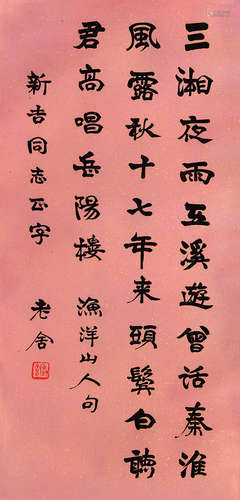 三湘夜雨五溪遊曾話秦淮
風露秋十七年來頭鬢白聽
君高唱岳陽樓 漁洋山人句
新吉同志正字
老舍